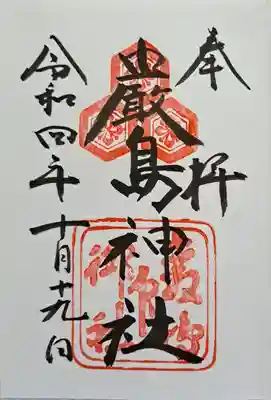 奉拝
厳島神社
令和四年十月十九日